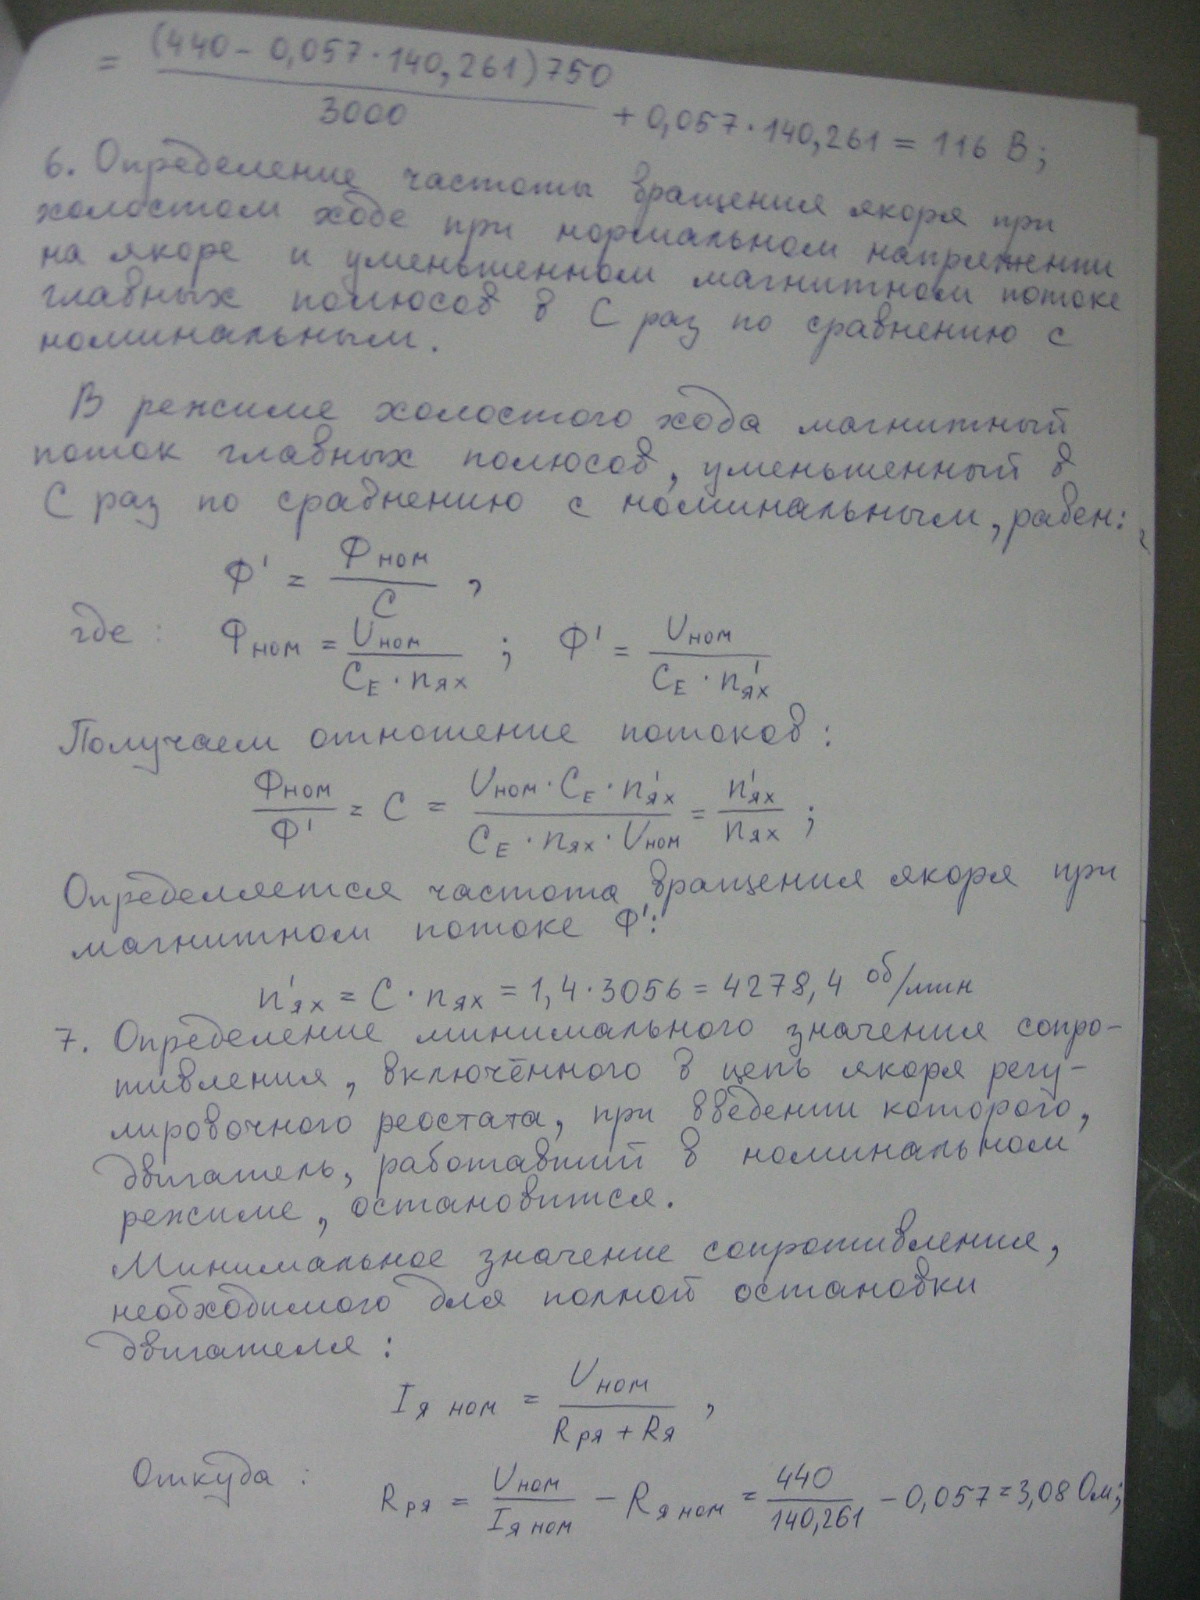 = (440 - 0,057 · 140,261) 750 / 3000 + 0,057 · 140,261 = 116 В;
6. Определение частоты вращения якоря при
холостом ходе при нормальном напряжении
на якоре и уменьшенном магнитном потоке
главных полюсов в С раз по сравнению с
номинальным.
В режиме холостого хода магнитный
поток главных полюсов, уменьшенный в
С раз по сравнению с номинальным, равен:
Ф' = Фном / С ,
где: Фном = Uном / (CE · nях) ; Ф' = Uном / (CE · n'ях)
Получаем отношение потоков:
Фном / Ф' = С = (Uном · CE · n'ях) / (CE · nях · Uном) = n'ях / nях ;
Определяется частота вращения якоря при
магнитном потоке Ф':
n'ях = С · nях = 1,4 · 3056 = 4278,4 об/мин
7. Определение минимального значения сопро-
тивления, включённого в цепь якоря регу-
лировочного реостата, при введении которого,
двигатель, работавший в номинальном
режиме, остановится.
Минимальное значение сопротивления,
необходимого для полной остановки
двигателя:
Iя ном = Uном / (Rря + Rя) ,
Откуда:
Rря = Uном / Iя ном - Rя ном = 440 / 140,261 - 0,057 = 3,08 Ом;